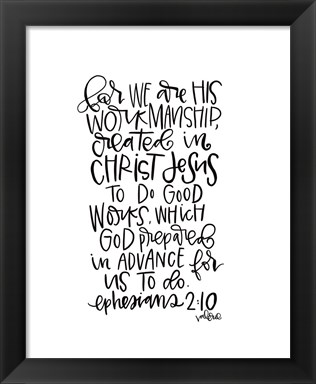 for WE are HIS
WORKMANSHIP,
created in
CHRIST JESUS
TO DO GOOD
WORKS, WHICH
GOD prepared
in ADVANCE for
US TO do.
ephesians 2:10